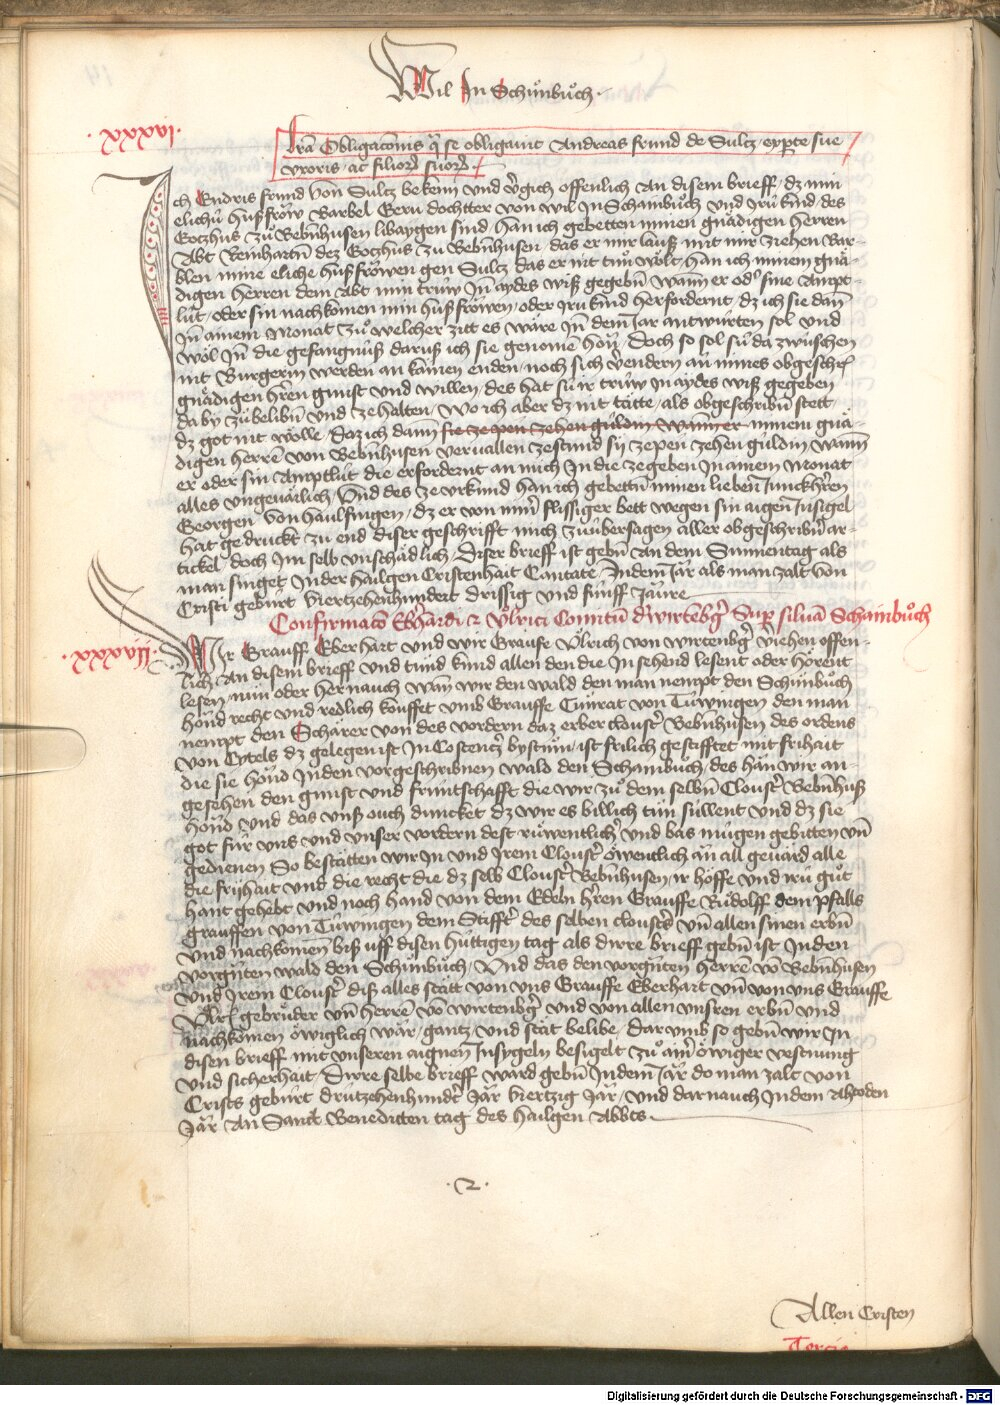 Wil In Schůnbůch
·xxxvi·
Lrā Obligacōnis qͣ se obligauit Andreas frund de Sulcz, exp̱te sue
vxoris, ac filioꝝ suoꝝ
Ich Endris frund von Sulcz bekenn vnd v̓gich offenlich An disem brieff, dz min
elichů hußfrow Barbel Gern dochtter von wil In Schainbůch vnd Irů kind, des
Goczhus zů Bebn̄husen libaygen sind, han ich gebetten minen gnädigen Herren
Abt Reinhartn̄ dez Goczhus zu Bebn̄husen, das er mir lauß mit mir ziehen Bar-
blen mine eliche Hußfröwen gen Sulcz das er nit tůn wolt, han ich minem gnä-
digen Herren dem Abt min trüw In aydes wiß gegebn̄ wann er od̓ sine Ampt-
lüt, oder sin nachkomen min Hußfröwen, oder Iru kind herfordernt, dz ich sie dan̄
In ainem Monat zů welcher zitt es wäre In dem Iar antwürten sol vnd
wöl In die gefangnüß daruß ich sie genomē hon̄, doch so sol sü da zwüschen
nit Burgerin werden an kainen enden, noch sich v̓endern an mines obgesch
gnädigen h̓ren gunst vnd willen, des hat sü ir trüw In aydes wiß gegeben
da by zübelibn̄ vnd zehalten, Wo ich aber dz nit tätte, als obgeschribn̄ stett
dz got nit wölle, Daz ich dann sie ze pen zehen guldin wann er minem gnä-
digen herrē von Bebn̄husen veruallen zestand sy zepen zehen guldin wann
er oder sin Amptlüt die erfordernt an mich In die zegeben In ainem Monat
alles vngeuarlich, Vnd des ze vrkund han ich gebettn̄ minen lieben Junckh̓ren
Georgen von Haulfingen, dz er von min̄ flissiger bett wegen sin aigen Insigel
hat gedruckt zu end diser geschrifft mich zůübersagen aller obgeschribn̄ ar-
tickel, doch Im selb vnschädlich, Diser brieff ist gebn̄ an dem Sunnentag als
man singet In der hailgen Cristenhait Cantate, In dem Iar als man zalt von
Cristi gebürt viertzehenhundert drissig vnd fünff Iaure
Confirmacō Ebh̓ardi ⁊ Vlrici Comitū d̓ wirtēbg̓ Sup̱ siluā Schainbůch
·xxxvii·
Wir Grauff Eberhart vnd wir Graufe Vlrich von wirtenbg̓ v̓iehen offen-
lich an disem brieff vnd tund kund allen den die In sehend lesent oder hörent
lesen nun oder hernauch wan wir den wald den man nempt den Schünbůch
hond recht vnd redlich kouffet vmb Grauffe Cünrat von Tüwingen den man
nempt den Schärer von des vordern daz erber closter̓ Bebn̄husen des ordens
von Cytels dz gelegen ist In Costencz̓ bystům, ist frilich gestifftet mit frihait
die sie hond In den vorgeschribnen wald den Schainbůch, des han wir an-
gesehen den gunst vnd fruntschafft die wir zů dem selbn̄ Closter̓ Bebn̄huß
hond vnd das vnß ouch duncket dz wir es billich tün süllent vnd dz sie
got für vns vnd vnser vordern dest růwentlich̓ vnd bas mügen gebitten vn̄
gedienen So bestätten wir In vnd Irem Closter̓ öwentlich an all geuärd alle
die frijhait vnd die recht die dz selb Closter̓ Bebn̄husen, ir höffe vnd irü gůt
hant gehebt vnd noch hand von dem Edeln h̓ren Grauffe Růdolff dem pfalls
grauffen von Tüwingen dem Stiffter̓ des selben closters̓ vn̄ allen sinen erbn̄
vnd nachkomen biß vff disen hüttigen tag als dirre brieff gebn̄ ist In den
vorgn̄ten wald den Schünbůch, Vnd das den vorgn̄ten herrē vō Bebn̄husen
vnd Irem Closter̓ diß alles stätt von vns Grauffe Eberhart vn̄ von vns Grauffe
Vlrich gebrüder vn̄ herrē vō wirtenbg̓ vnd von allen vnsren erbn̄ vnd
nachkomen öwiglich wär, gantz, vnd stät belibe, Dar vmb so gebn̄ wir In
disen brieff mit vnseren aignen Insygeln besigelt zů ain̓ öwiger vestnung
vnd sicherhait, Dirre selbe brieff ward gebn̄ In dem Iär do man zalt von
Crists gebürt drützehenhundert̓ Iär viertzig Iär, vnd darnauch In dem Ahtoden
Iär an Sanct Benedicten tag des hailgen Abbts
·2·
Allen Cristen
Tercio
Digitalisierung gefördert durch die Deutsche Forschungsgemeinschaft - DFG